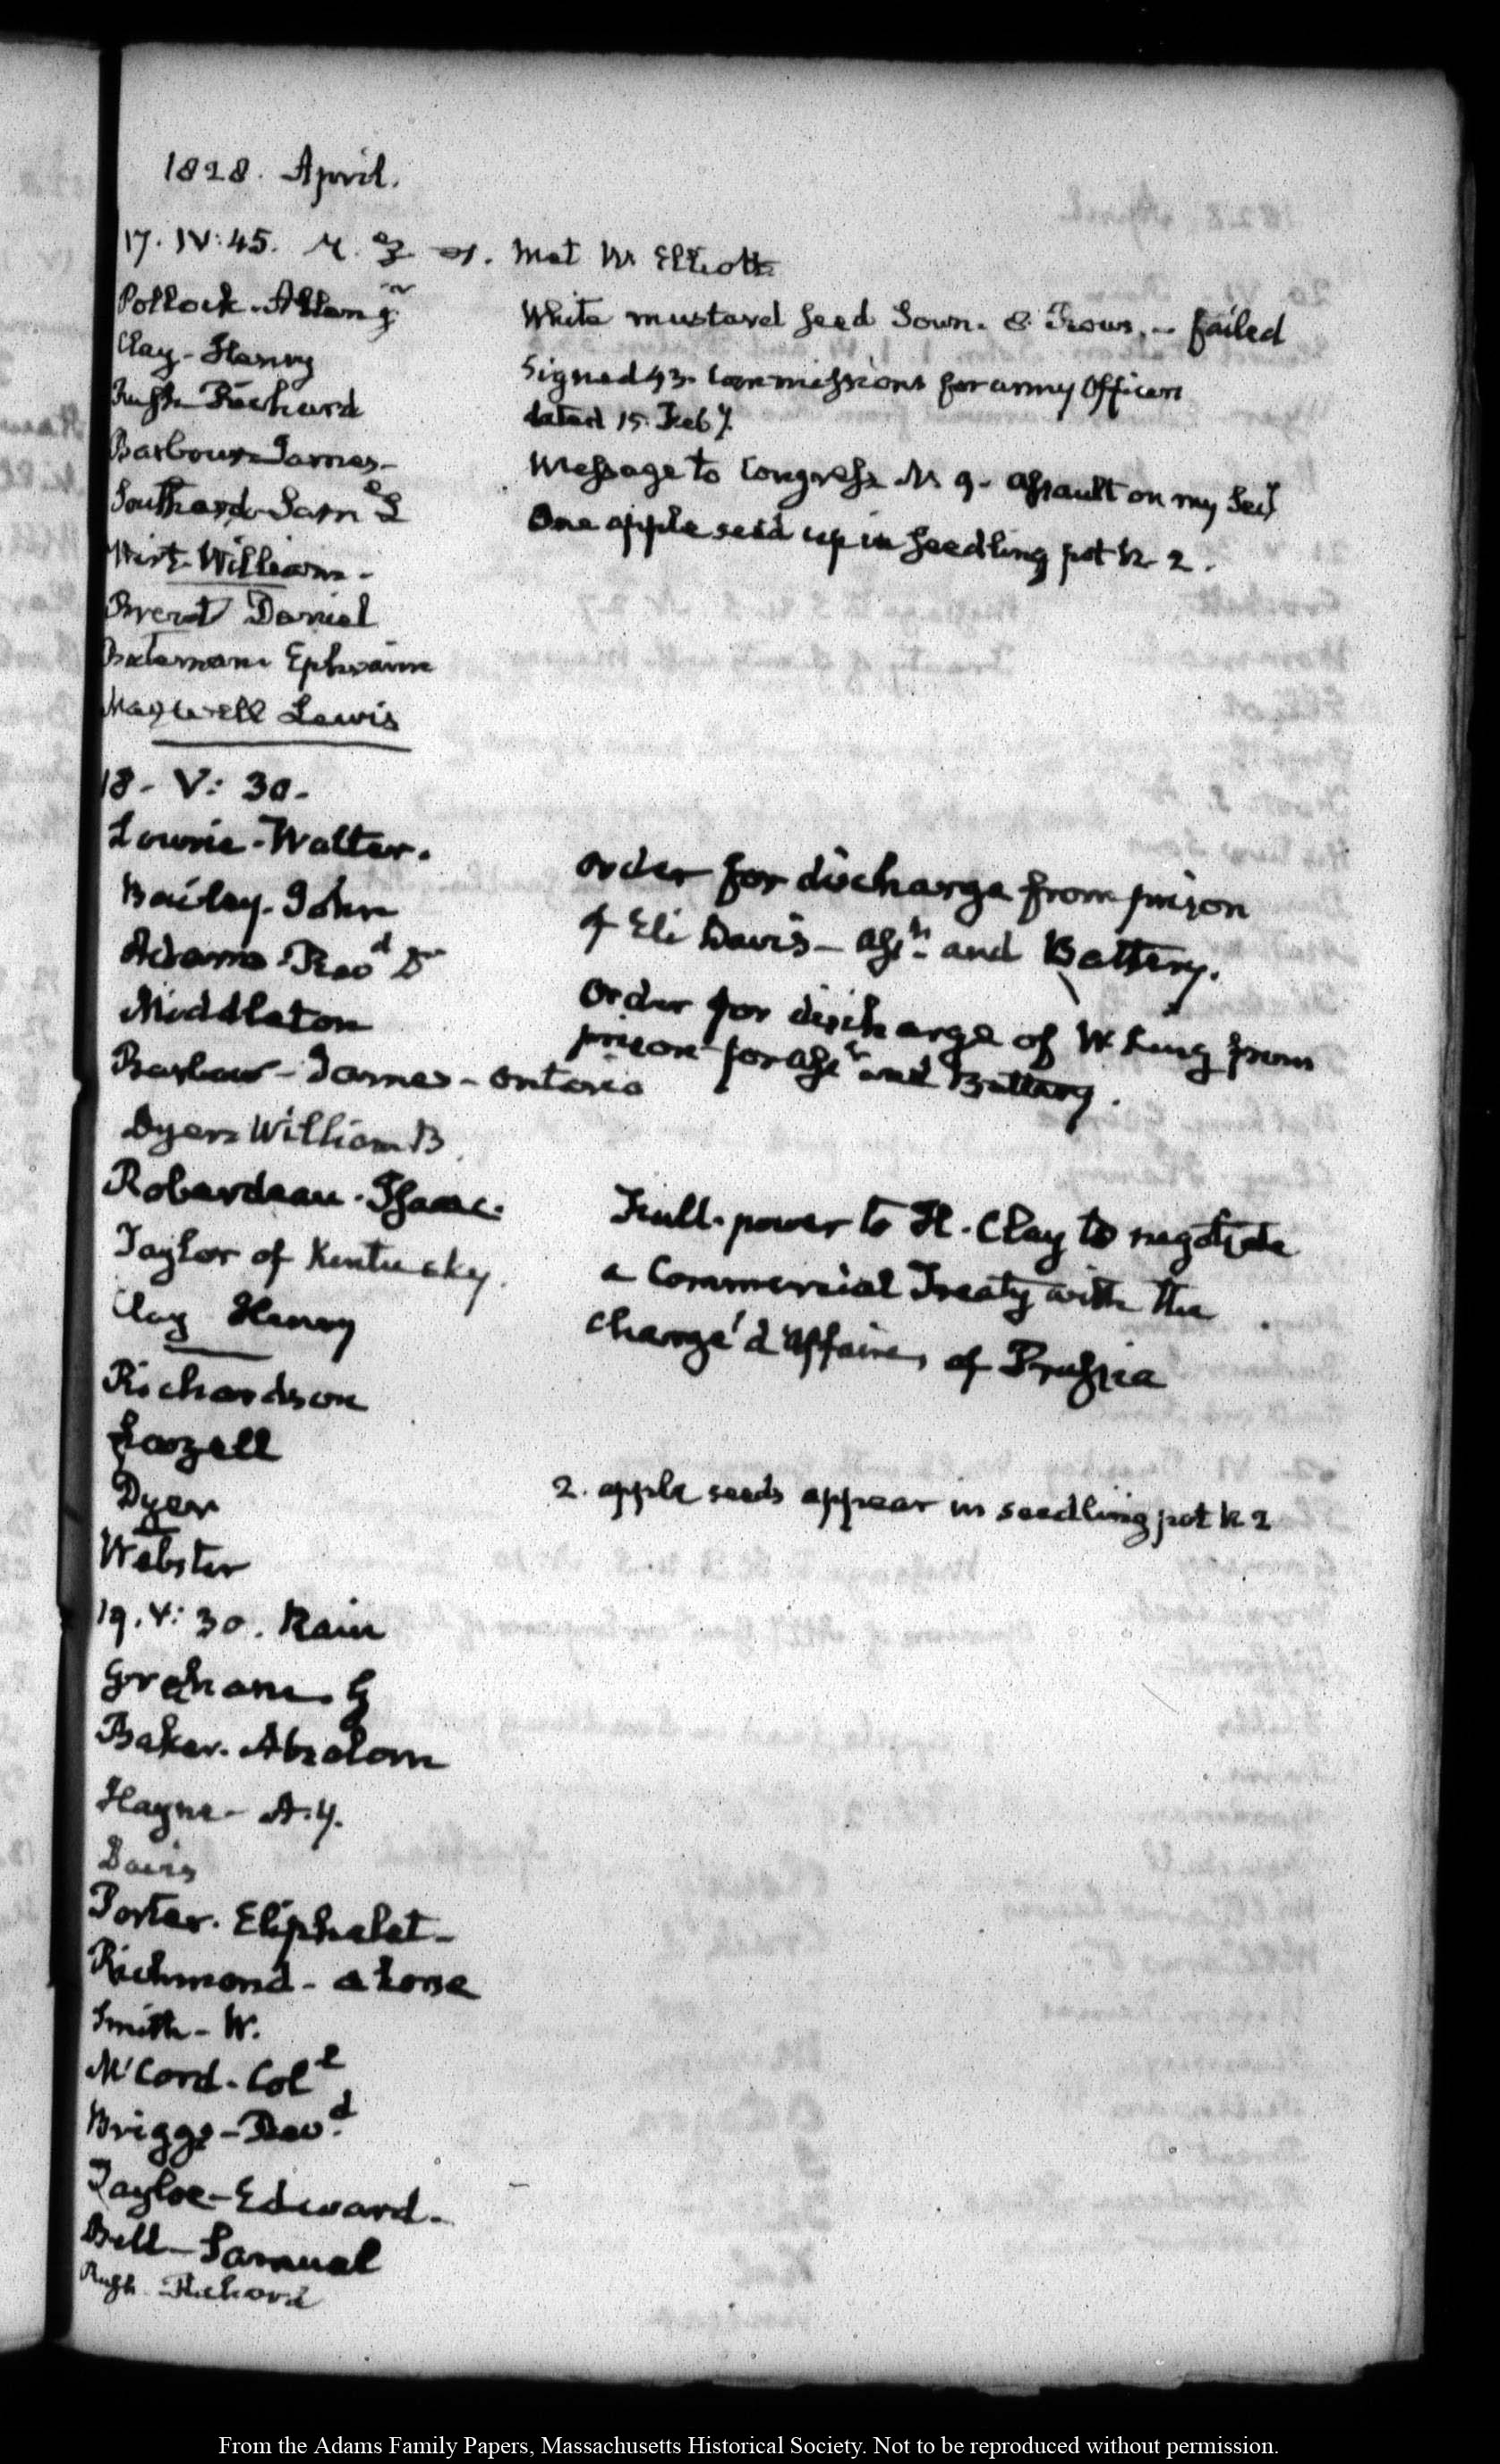 1828. April.
17. IV:45. Met Mr Elliott
Pollock. Allan
White mustard seed sown. 8 Rows. - failed
Clay - Henry
Signed 43. Commissions for army Officers
Rush Richard
dated 15. Feby.
Barbour James -
Message to Congress N 9. Assault on my Secy
Southard Saml L
One apple seed up in seedling pot N 2.
Wirt William -
Brent Daniel
Bateman Ephraim
Maxwell Lewis
18 - V: 30 -
Lowrie - Walter.
Order for discharge from prison
Bailey. John
of Eli Davis - Asst. and Battery.
Adams Revd Dr
Order for discharge of W King from
Middleton
prison for Asst and Battery.
Barlow - James - Ontario
Dyer William B.
Roberdeau. Isaac.
Full. power to H. Clay to negotiate
Taylor of Kentucky.
a Commercial Treaty with the
Clay Henry
Chargé d'Affaires of Prussia
Richardson
Lazell
Dyer
2. apple seeds appear in seedling pot N 2
Webster
19. V: 30. Rain
Graham. G
Baker. Absalom
Hayne - A. Y.
Davis
Porter. Eliphalet -
Richmond - a horse
Smith - W.
McCord - Coll
Briggs - Revd
Tayloe - Edward -
Bell - Samuel
Rush Richard
From the Adams Family Papers, Massachusetts Historical Society. Not to be reproduced without permission.